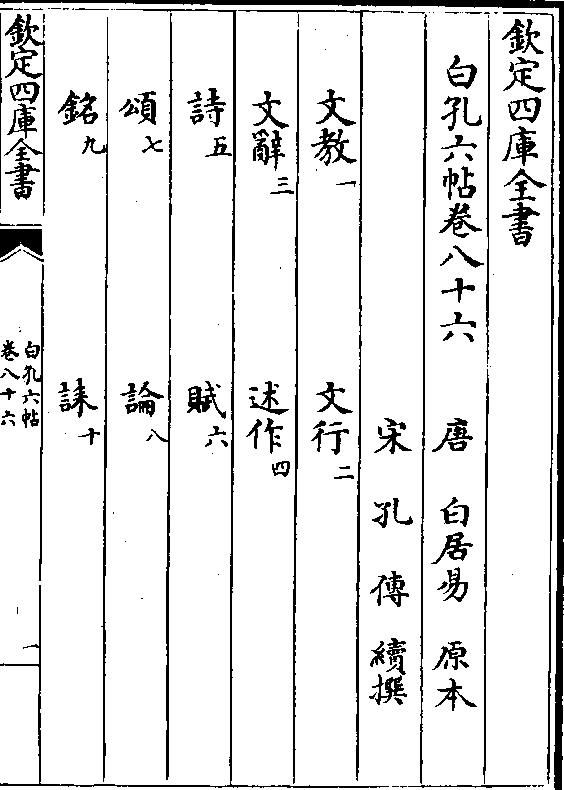 欽定四庫全書
白孔六帖卷八十六　唐　白居易　原本
宋　孔　傳　續撰
文教一　文行二
文辭三　述作四
詩五　賦六
頌七　論八
銘九　誄十
欽定四庫全書
白孔六帖
卷八十六
一